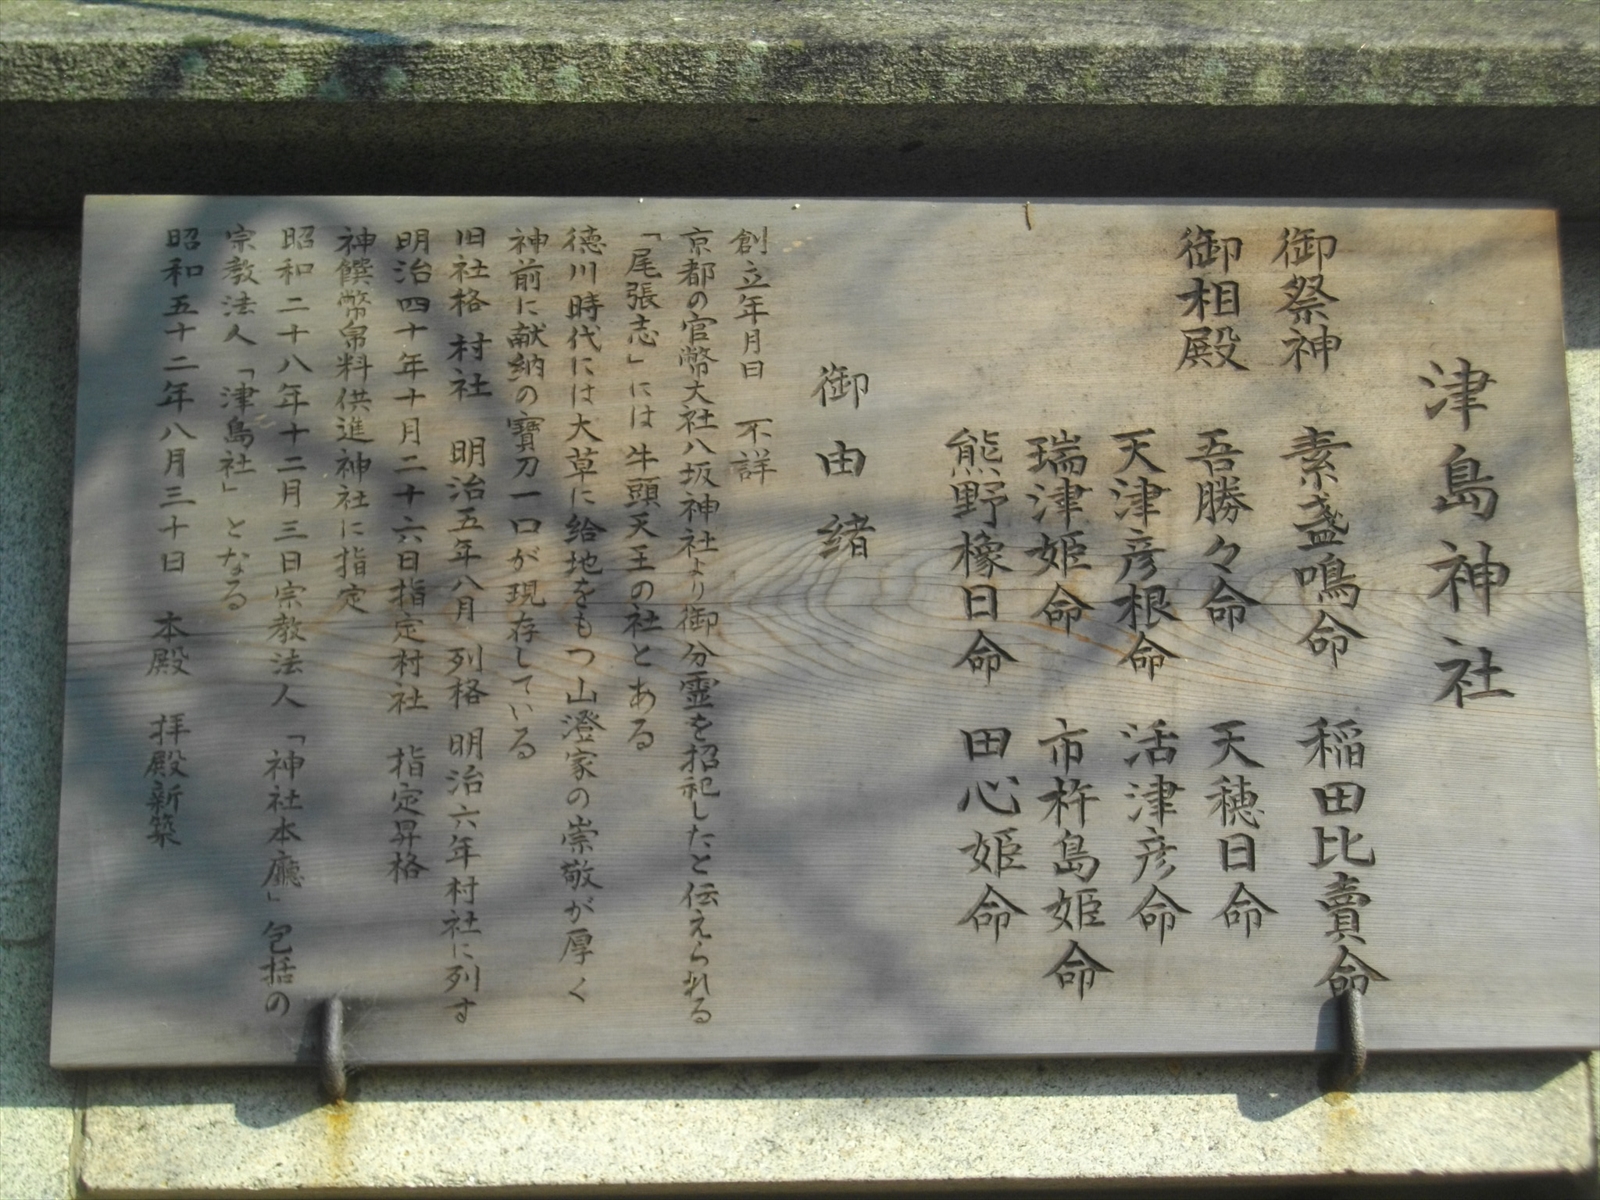 津島神社
御祭神 素盞鳴命 稲田比賣命
御相殿 吾勝々命 天穂日命
天津彦根命 活津彦命
瑞津姫命 市杵島姫命
熊野櫲日命 田心姫命
御由緒
創立年月日 不詳
京都の官幣大社八坂神社より御分霊を招祀したと伝えられる
「尾張志」には牛頭天王の社とある
徳川時代には大草に給地をもつ山澄家の崇敬が厚く
神前に献納の寶刀一口が現存している
旧社格 村社 明治五年八月 列格 明治六年村社に列す
明治四十年十月二十六日指定村社 指定昇格
神饌幣帛料供進神社に指定
昭和二十八年十二月三日宗教法人「神社本廳」包括の
宗教法人「津島社」となる
昭和五十二年八月三十日 本殿 拝殿新築